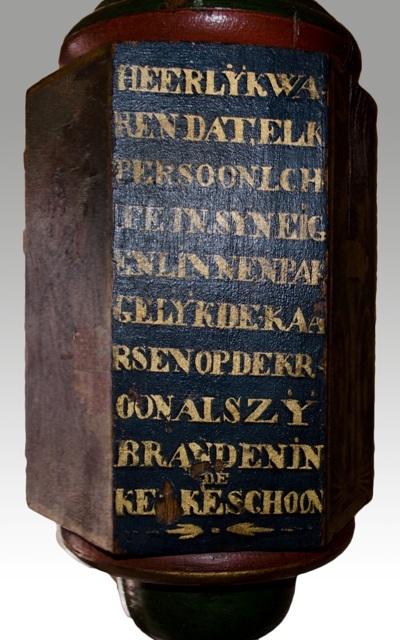 HEERLŸKWA
REN DAT, ELK
PERSOONLCH
FE IN SYN EIG
EN LINNEN PAK
GELYK DE KAA
RSEN OP DE KR
OON ALS ZŸ
BRANDEN IN
DE
KERKE SCHOON